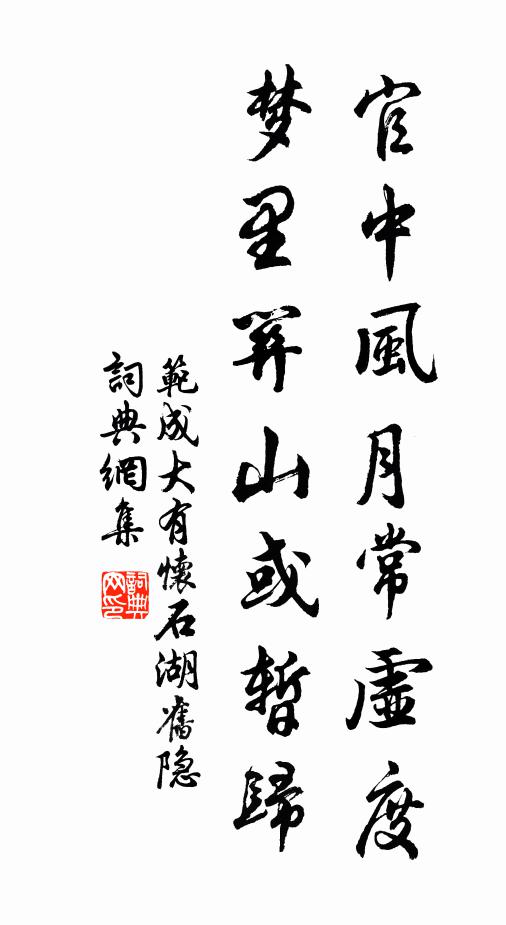 官中風月常虛度
梦里關山或暫歸
範成大有懷石湖舊隐
詞典網集
詞典网印